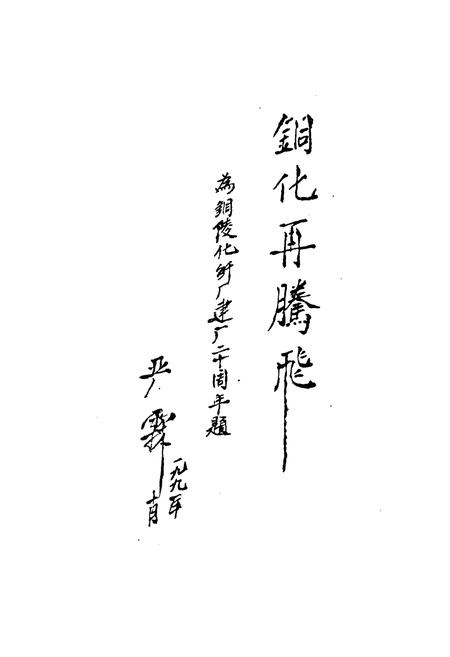 銅化再騰飛
為銅陵化纤厂建厂二十周年題
严霖
一九九一年
十月